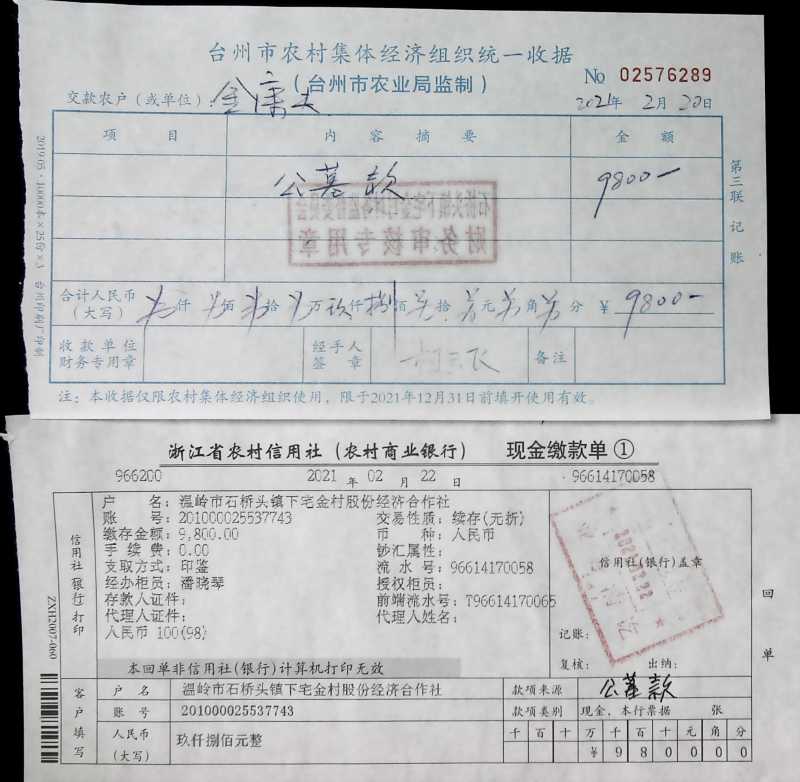 台州市农村集体经济组织统一收据
（台州市农业局监制）
No 02576289
交款农户（或单位） 金
2021年 2月 20日
项 目 内 容 摘 要 金 额
公墓款 9800-
石桥头镇下宅金村村务监督委员会
财务审核专用章
合计人民币（大写） 仟 佰 拾 万玖仟捌佰 拾 元 角 分 ¥ 9800-
收款单位财务专用章
经手人签章
备注
注：本收据仅限农村集体经济组织使用，限于2021年12月31日前填开使用有效。
第三联 记账
2019.05·10000本×25份×3 台州印刷厂印制
浙江省农村信用社（农村商业银行） 现金缴款单①
966200 2021 年 02 月 22 日 96614170058
户 名：温岭市石桥头镇下宅金村股份经济合作社
账 号：201000025537743 交易性质：续存(无折)
缴存金额：9,800.00 币 种：人民币
手 续 费：0.00 钞汇属性：
支取方式：印鉴 流 水 号：96614170058
经办柜员：潘晓琴 授权柜员：
存款人证件： 前端流水号：T96614170065
代理人证件： 代理人姓名：
人民币 100(98)
本回单非信用社(银行)计算机打印无效
信用社(银行)打印
信用社(银行)盖章
记账：
复核： 出纳：
回单
ZXH2007-060
客户填写
户 名 温岭市石桥头镇下宅金村股份经济合作社 款项来源 公墓款
账 号 201000025537743 款项类别 现金、本行票据 张
人民币（大写） 玖仟捌佰元整
千 百 十 万 千 百 十 元 角 分
¥ 9 8 0 0 0 0